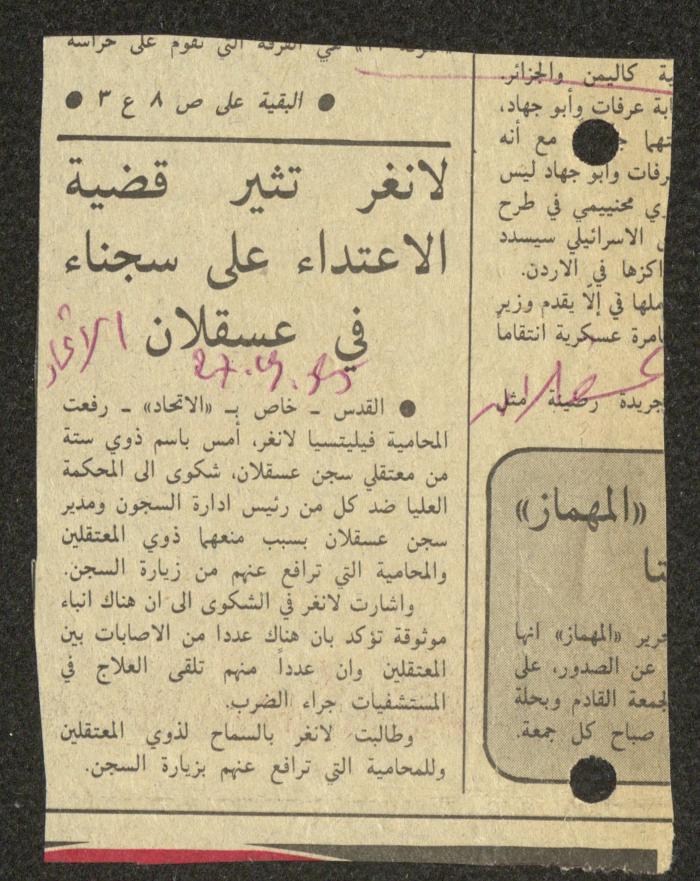 هي الفرقة التي تقوم على حراسة
● البقية على ص ٨ ع ٣ ●
لانغر تثير قضية
الاعتداء على سجناء
في عسقلان
الاتحاد
● القدس ـ خاص بـ «الاتحاد» ـ رفعت
المحامية فيليتسيا لانغر، أمس باسم ذوي ستة
من معتقلي سجن عسقلان، شكوى الى المحكمة
العليا ضد كل من رئيس ادارة السجون ومدير
سجن عسقلان بسبب منعهما ذوي المعتقلين
والمحامية التي ترافع عنهم من زيارة السجن.
واشارت لانغر في الشكوى الى ان هناك انباء
موثوقة تؤكد بان هناك عددا من الاصابات بين
المعتقلين وان عدداً منهم تلقى العلاج في
المستشفيات جراء الضرب.
وطالبت لانغر بالسماح لذوي المعتقلين
وللمحامية التي ترافع عنهم بزيارة السجن.
ية كاليمن والجزائر.
ابة عرفات وأبو جهاد،
مع أنه
رفات وأبو جهاد ليس
ي محنييمي في طرح
الاسرائيلي سيسدد
اكزها في الاردن.
ملها في إلّا يقدم وزير
امرة عسكرية انتقاماً
جريدة رصينة مثل
«المهماز»
تا
حرير «المهماز» انها
عن الصدور، على
لجمعة القادم وبحلة
صباح كل جمعة.